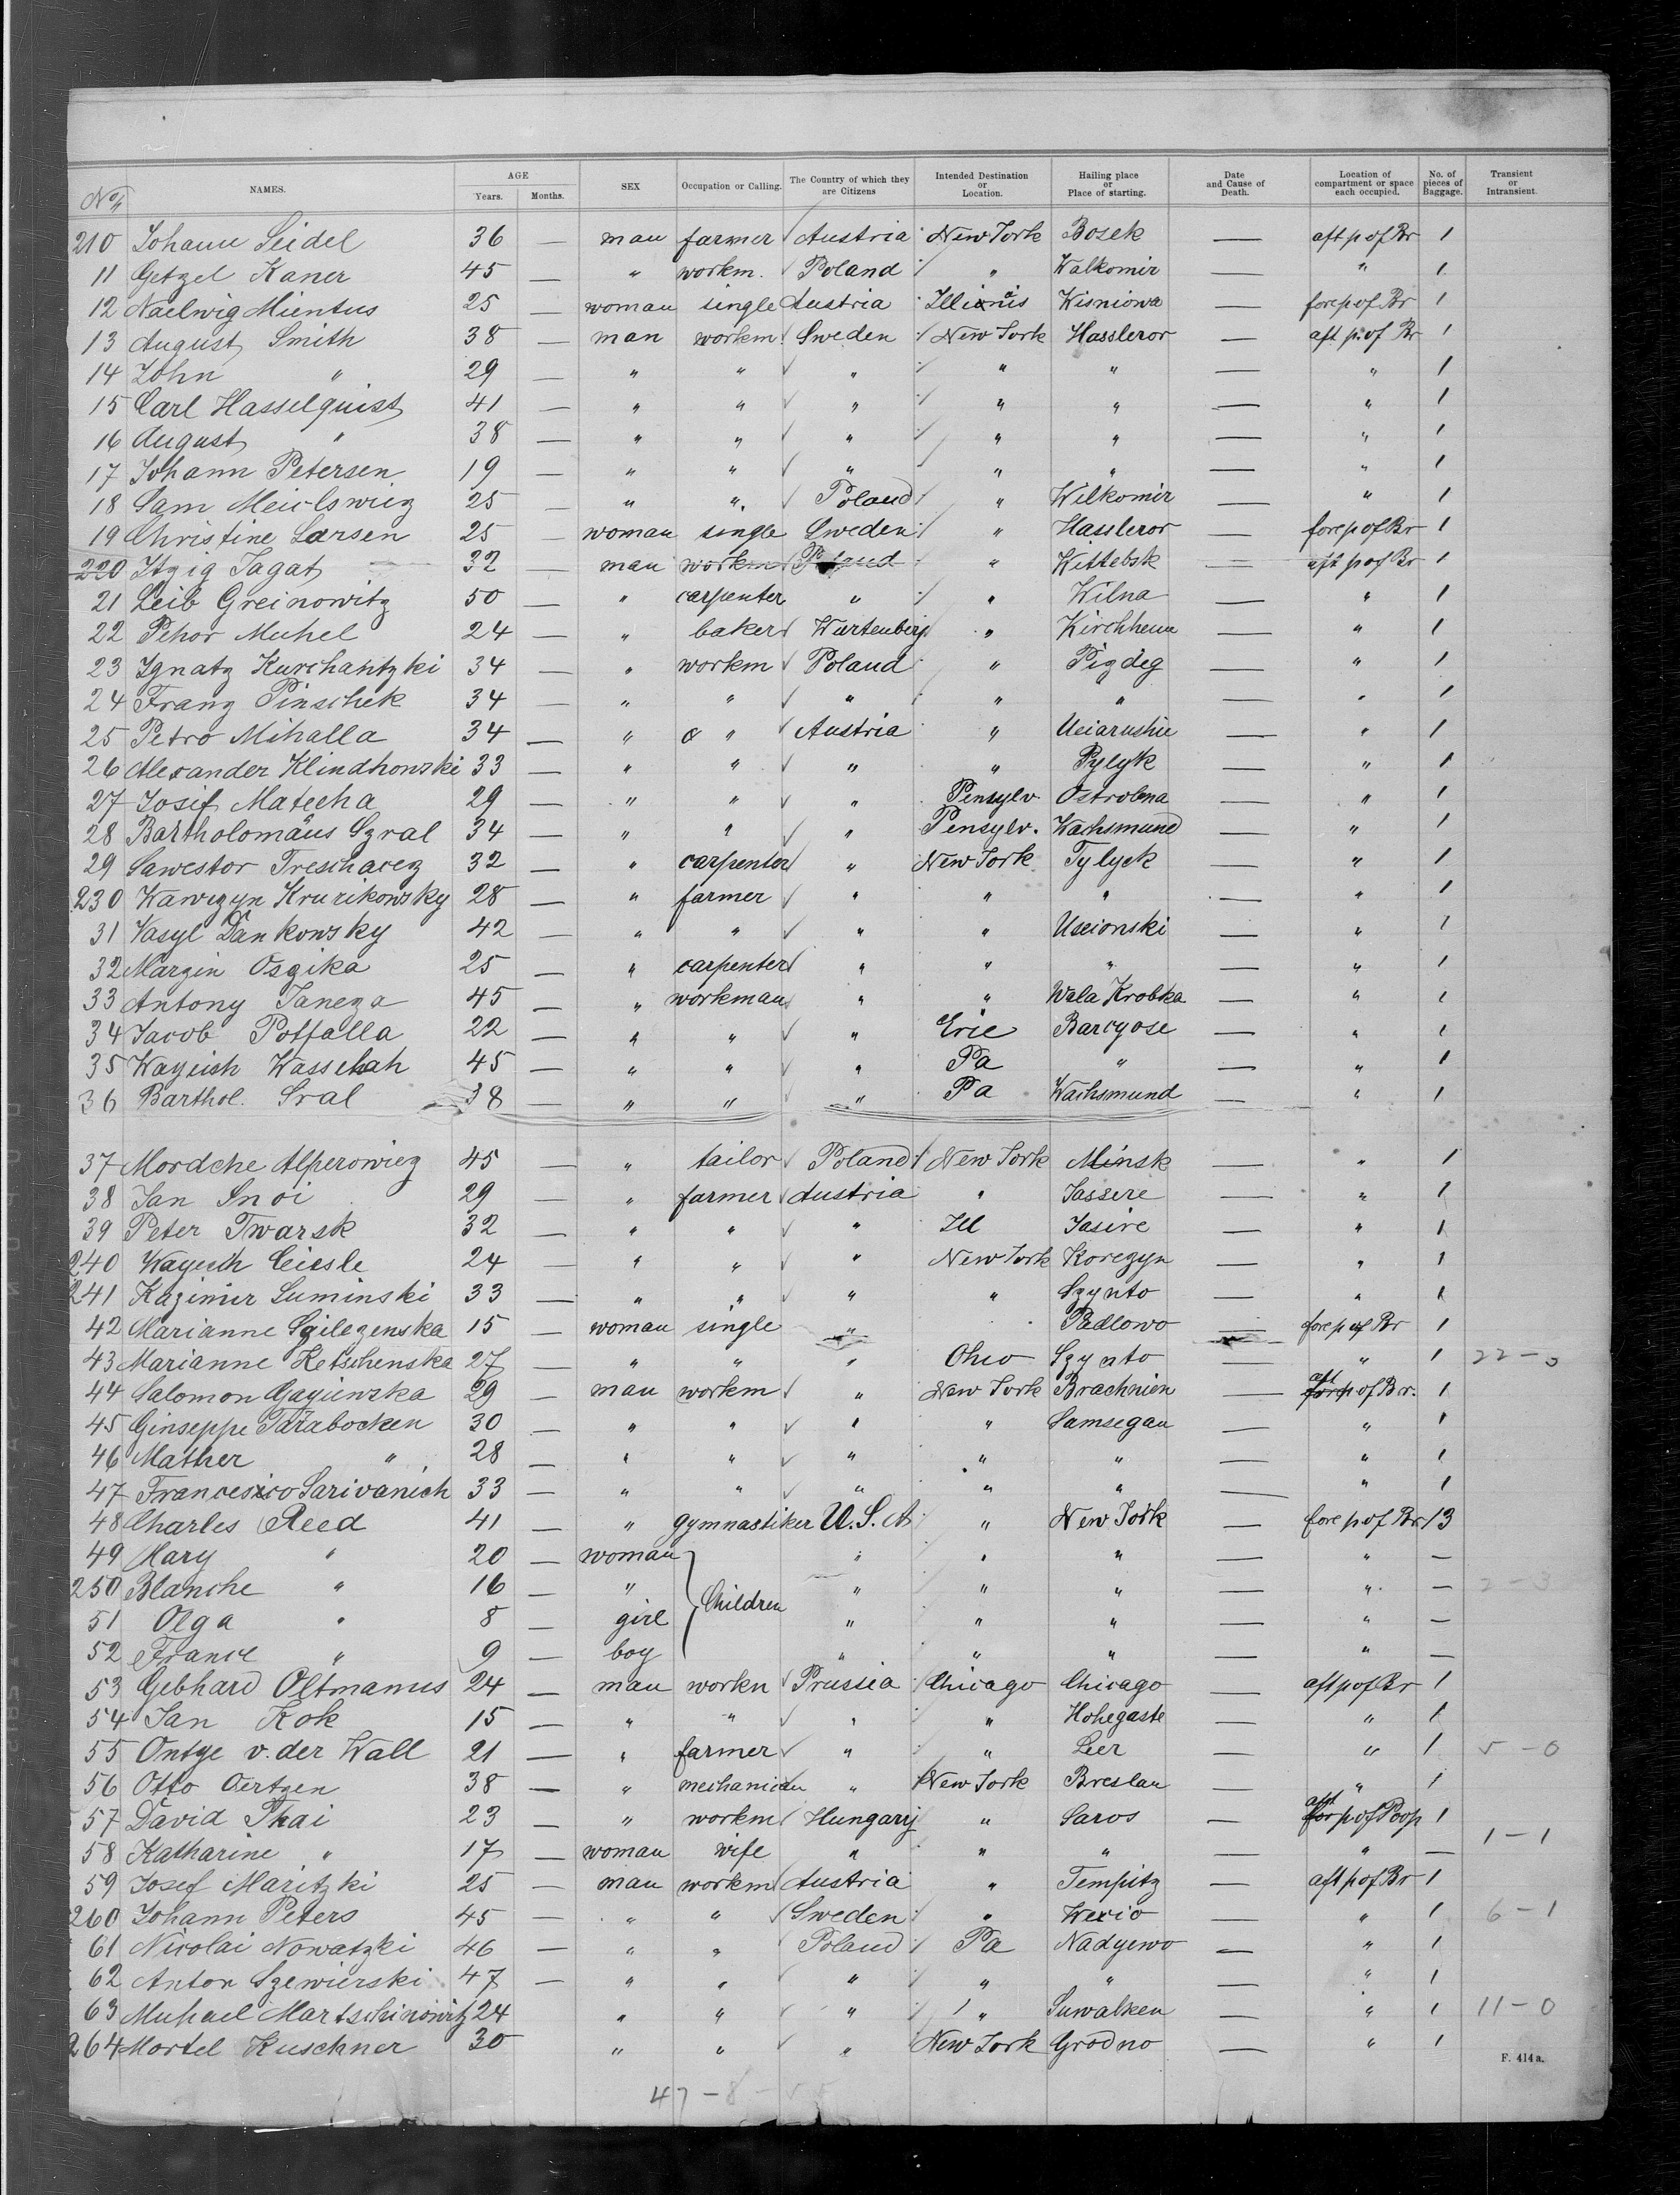 No. NAMES. AGE Years. Months. SEX Occupation or Calling. The Country of which they are Citizens Intended Destination or Location. Hailing place or Place of starting. Date and Cause of Death. Location of compartment or space each occupied. No. of pieces of Baggage. Transient or Intransient.
210 Johann Seidel 36 — man farmer Austria New York Bosek — aft p of Br 1
11 Getzel Kaner 45 — " workm. Poland " Walkomir — " 1
12 Naelwig Mientus 25 — woman single Austria Illinois Wisniowa — fore p of Br 1
13 August Smith 38 — man workm. Sweden New York Hassleror — aft p. of Br 1
14 John " 29 — " " " " " — " 1
15 Carl Hasselquist 41 — " " " " " — " 1
16 August " 38 — " " " " " — " 1
17 Johann Petersen 19 — " " " " " — " 1
18 Sam Meiclswiez 25 — " " Poland " Wilkomir — " 1
19 Christine Larsen 25 — woman single Sweden " Hassleror — fore p of Br 1
220 Itzig Jagat 32 — man workm Poland " Wittebsk — aft p of Br 1
21 Leib Greinowitz 50 — " carpenter " " Wilna — " 1
22 Pehor Muhel 24 — " baker Wurtenberg " Kirchheim — " 1
23 Ignatz Kurchantzki 34 — " workm Poland " Pizdeg — " 1
24 Franz Pinschek 34 — " " " " " — " 1
25 Petro Mihalla 34 — " " Austria " Ueiarushie — " 1
26 Alexander Klindhowski 33 — " " " " Pylyk — " 1
27 Josif Matecha 29 — " " " Pensylv Ostrobna — " 1
28 Bartholomäus Szral 34 — " " " Pensylv. Wachsmund — " 1
29 Sawestor Treschacez 32 — " carpenter " New York Tylyck — " 1
230 Wawrzyn Krurikowsky 28 — " farmer " " " — " 1
31 Vasyl Dankowsky 42 — " " " " Uscionski — " 1
32 Marzin Osgika 25 — " carpenter " " " — " 1
33 Antony Janeza 45 — " workman " " Wala Krobka — " 1
34 Jacob Potfalla 22 — " " " Erie Barcyose — " 1
35 Wayich Wasselah 45 — " " " Pa " — " 1
36 Barthol. Sral 38 — " " " Pa Wachsmund — " 1
37 Mordche Alperowiez 45 — " tailor Poland New York Minsk — " 1
38 Jan Snoi 29 — " farmer Austria " Jassere — " 1
39 Peter Twarsk 32 — " " " Ill Jasire — " 1
240 Wayuch Ciesle 24 — " " " New York Korczyn — " 1
241 Kazimir Suminski 33 — " " " " Szynto — " 1
42 Marianne Szilezenska 15 — woman single " Padlowo — fore p of Br 1
43 Marianne Ketschenska 27 — " " " Ohio Szynto — " 1 22 - 0
44 Salomon Gayienzka 29 — man workm " New York Brachnien — aft p of Br. 1
45 Ginseppe Tarabocken 30 — " " " " Samsegau — " 1
46 Mather " 28 — " " " " " — " 1
47 Francesico Sarivanich 33 — " " " " " — " 1
48 Charles Reed 41 — " gymnastiker U.S.A " New York — fore p of Br 13
49 Mary " 20 — woman " " " — " —
250 Blanche " 16 — " Children " " " — " — 2 - 3
51 Olga " 8 — girl " " " — " —
52 France " 9 — boy " " " — " —
53 Gebhard Oltmanns 24 — man workn Prussia Chicago Chicago — aft p of Br 1
54 Jan Kok 15 — " " " " Hohegaste — " 1
55 Ontge v. der Wall 21 — " farmer " " Leer — " 1 5 - 0
56 Otto Oertzen 38 — " mechanician " New York Breslau — " 1
57 David Thai 23 — " workm Hungary " Saros — aft p of Poop 1
58 Katharine " 17 — woman wife " " " — " — 1 - 1
59 Josef Maritzki 25 — man workm Austria " Tempitz — aft p of Br 1
260 Johann Peters 45 — " " Sweden " Wexio — " 1 6 - 1
61 Nicolai Nowatzki 46 — " " Poland Pa Nadyewo — " 1
62 Anton Szewierski 47 — " " " " " — " 1
63 Muhael Martschinowitz 24 " " " " Suwalken — " 1 11 - 0
264 Mortel Kuschner 30 " " " New York Grodno — " 1
F. 414a.
47 - 8